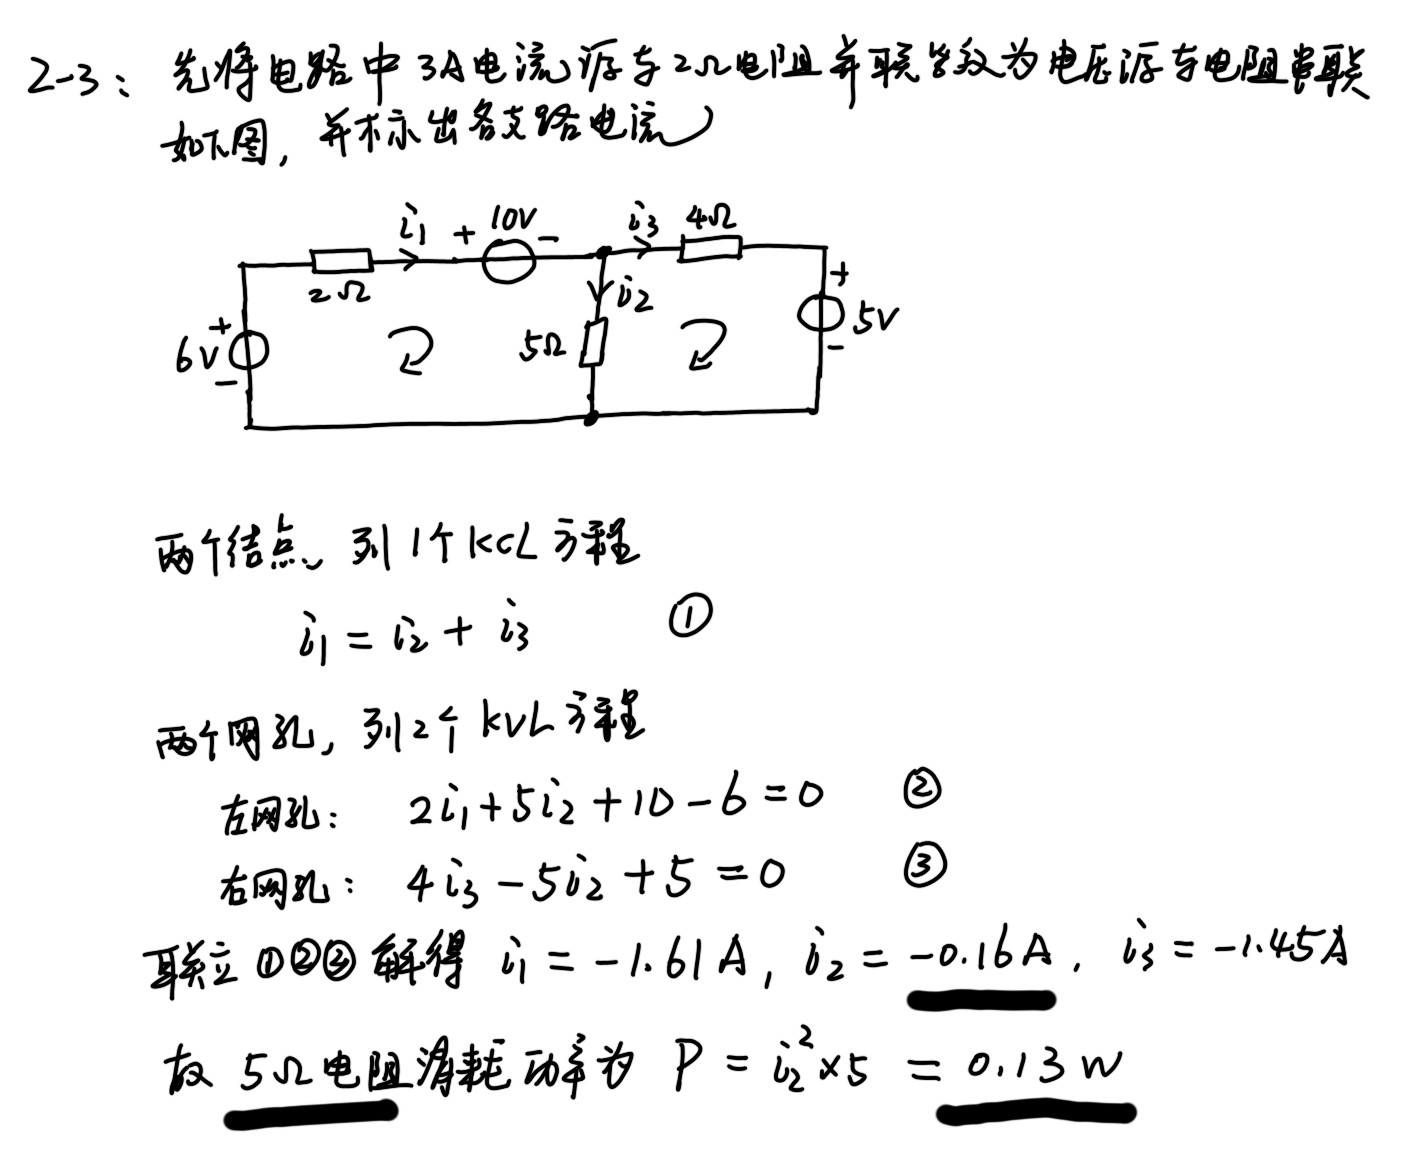 2-3: 先将电路中3A电流源与2Ω电阻并联等效为电压源与电阻串联
如下图，并标示出各支路电流
i₁ + 10V - i₃ 4Ω
2Ω i₂ +
6V + - 5Ω 5V -
两个结点、列1个KCL方程
i₁ = i₂ + i₃ ①
两个网孔，列2个KVL方程
左网孔: 2i₁+5i₂+10-6=0 ②
右网孔: 4i₃-5i₂+5=0 ③
联立①②③解得 i₁=-1.61A, i₂=-0.16A, i₃=-1.45A
故5Ω电阻消耗功率为 P=i₂²×5=0.13W